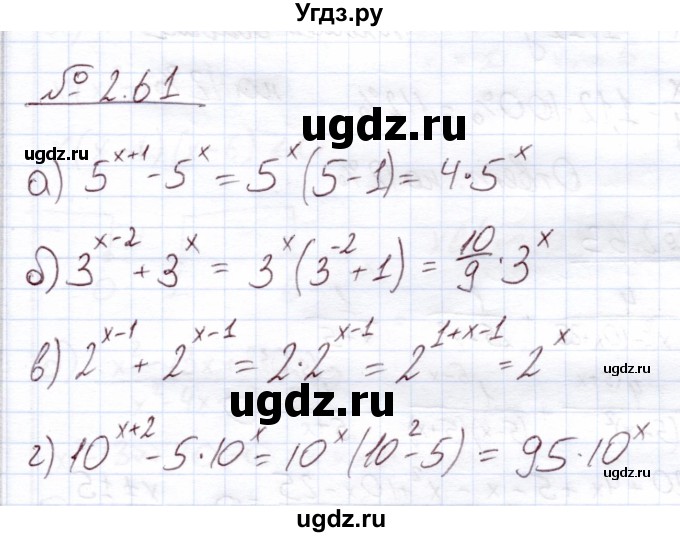 Угдз.ру
№ 2.61
ugdz.ru
ugdz.ru
ugdz.ru
а) 5^{x+1} - 5^x = 5^x (5 - 1) = 4 · 5^x
б) 3^{x-2} + 3^x = 3^x (3^{-2} + 1) = \frac{10}{9} · 3^x
в) 2^{x-1} + 2^{x-1} = 2 · 2^{x-1} = 2^{1+x-1} = 2^x
ugdz.ru
ugdz.ru
г) 10^{x+2} - 5 · 10^x = 10^x (10^2 - 5) = 95 · 10^x
ugdz.ru
ugdz.ru